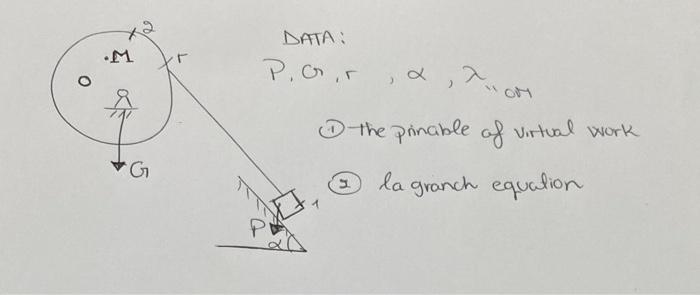 2
DATA:
.M
r
P, G, r, α, λ
"OM
O
① the prinable of virtual work
G
② la granch equation
1
P
α